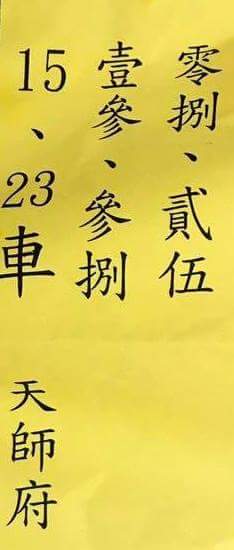 零捌、貳伍
壹參、參捌
15、23車
天師府